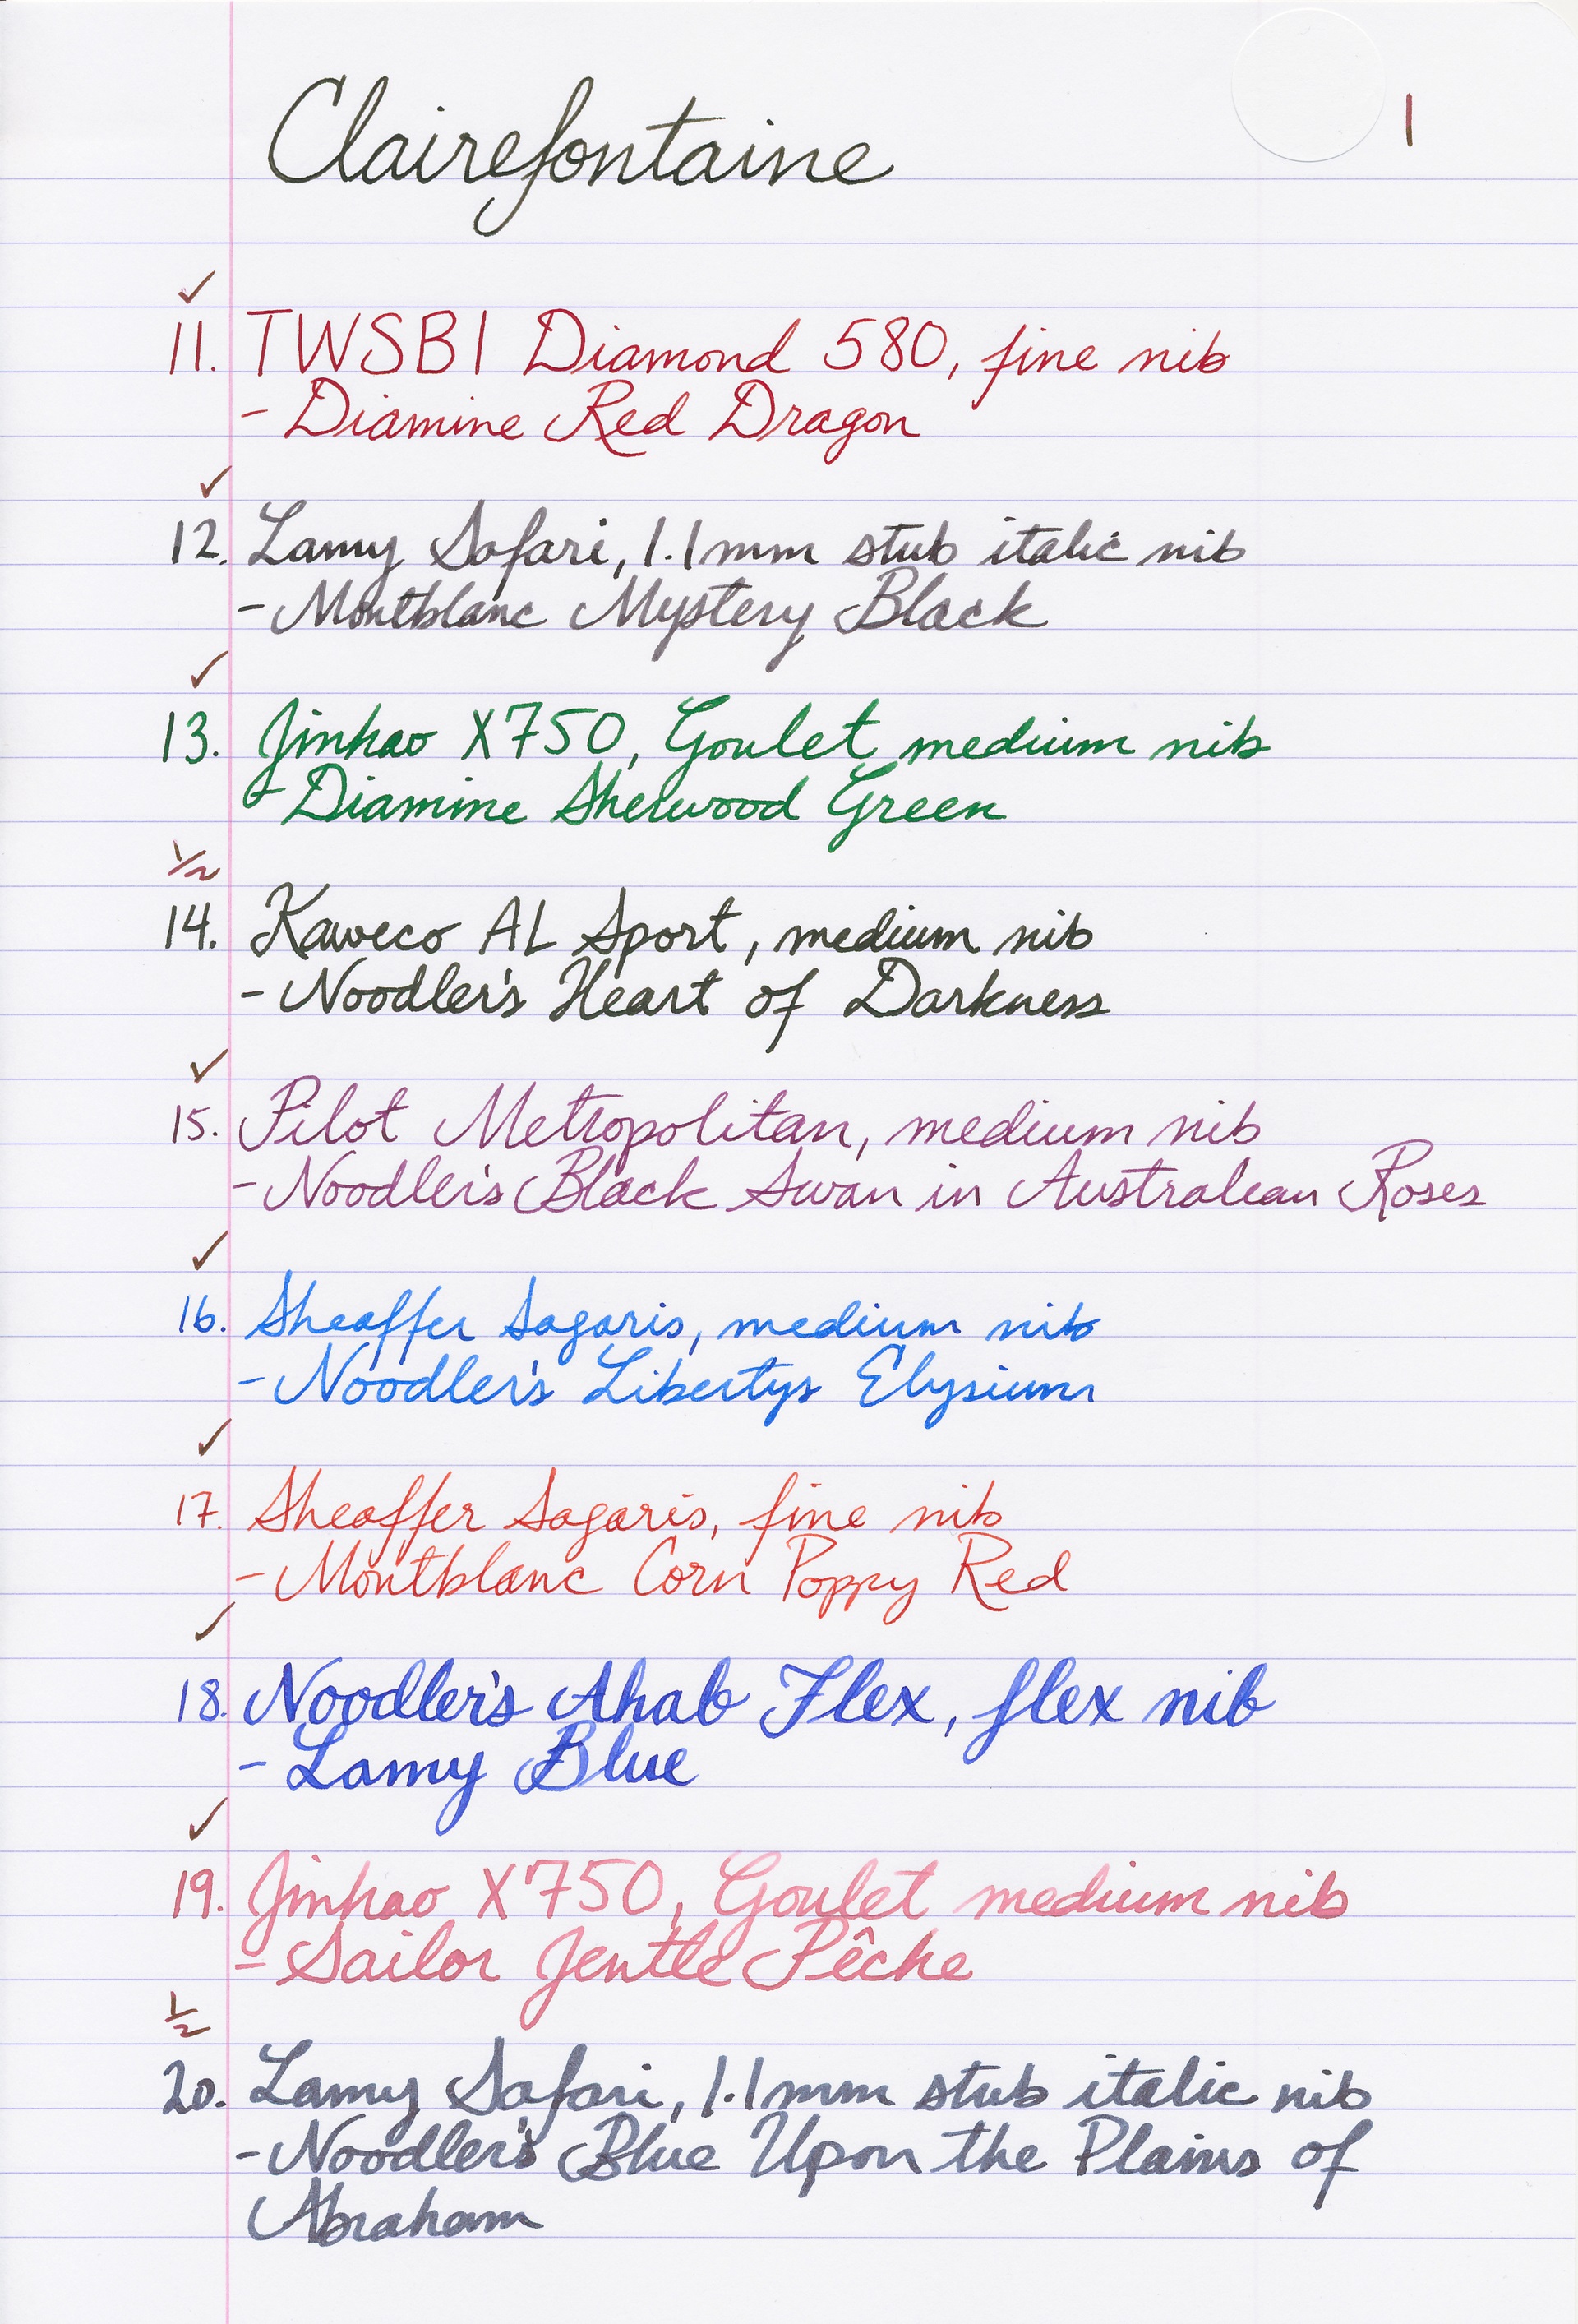 Clairefontaine
1
✓
11. TWSBI Diamond 580, fine nib
- Diamine Red Dragon
✓
12. Lamy Safari, 1.1mm stub italic nib
- Montblanc Mystery Black
✓
13. Jinhao X750, Goulet medium nib
- Diamine Sherwood Green
1/2
14. Kaweco AL Sport, medium nib
- Noodler's Heart of Darkness
✓
15. Pilot Metropolitan, medium nib
- Noodler's Black Swan in Australian Roses
✓
16. Sheaffer Sagaris, medium nib
- Noodler's Libertys Elysium
✓
17. Sheaffer Sagaris, fine nib
- Montblanc Corn Poppy Red
✓
18. Noodler's Ahab Flex, flex nib
- Lamy Blue
✓
19. Jinhao X750, Goulet medium nib
- Sailor Jentle Pêche
1/2
20. Lamy Safari, 1.1mm stub italic nib
- Noodler's Blue Upon the Plains of
Abraham